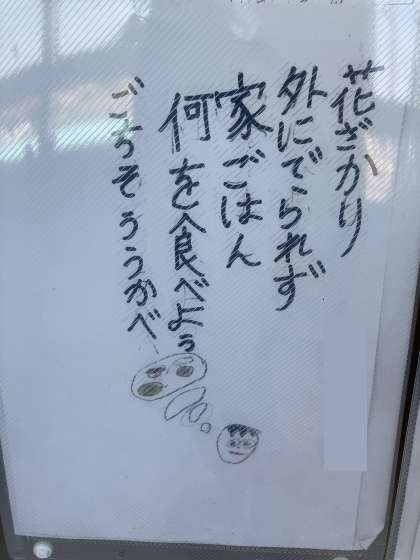 花ざかり
外にでられず
家ごはん
何を食べよぅ
ごちそううかべ